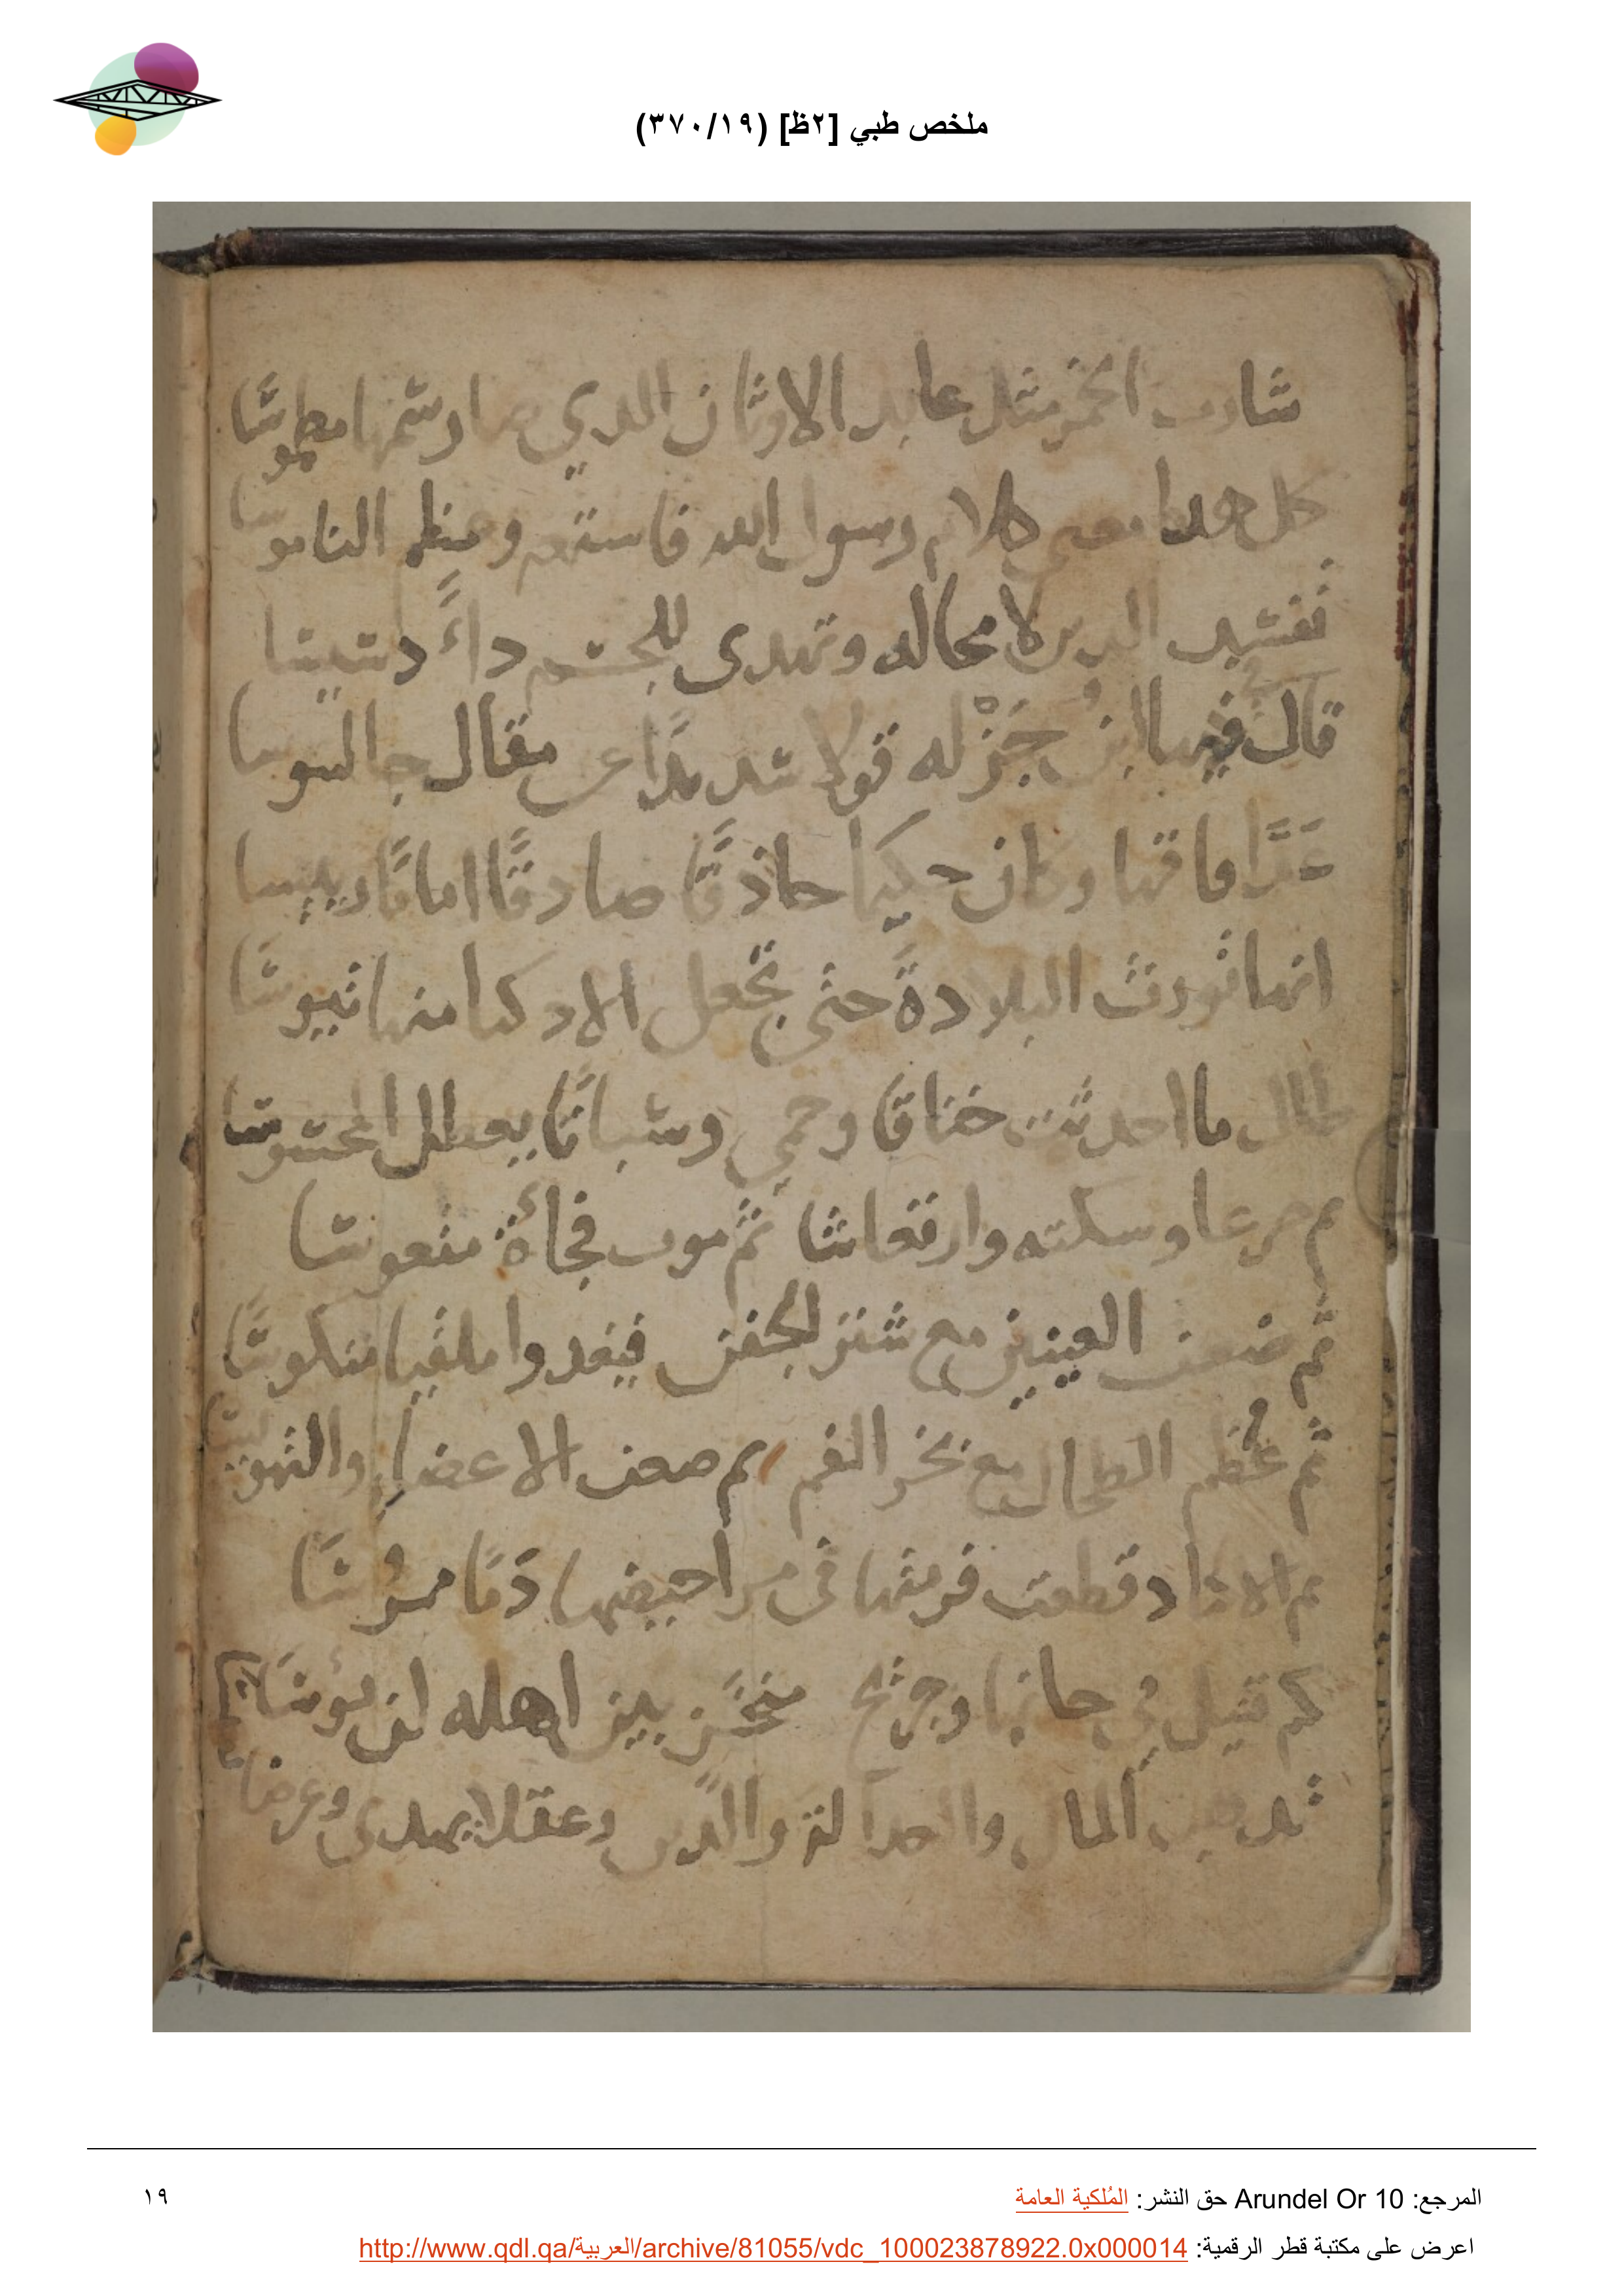 ملخص طبي [٢ظ] (٣٧٠/١٩)
شارب الخمر مثل عابد الاوثان الذي صار رسمها مطموسا
كل هدا معى كلام رسول الله فاستمع وعظم الناموسا
تفسد الدين لا محاله وتهدى للجسم داءً دسيسا
قال فيها ابن جَزْله قولا شديدًا عن مقال جالنوسا
عَدَّ افاتها وكان حكيما حاذقًا صادقًا امامًا رييسا
انها تورث البلادةً حتى تجعل الاذكيا منها تيوسا
طال ما احدثت خناقا وحمى وسباتًا يعطل المحسوسا
ثم صرعا وسكته وارتعاشا ثم موت فجأة منعوسا
ثم ضعف العينين مع شتر الجفن فيغدوا ملقيا منكوسًا
ثم عظم الطحال مع بخر الفم ثم ضعف الاعضاء والتهويسا
ثم الاكباد قطعت فرمتها في مراحيضها دَمًا
كم قتيل في حانها وجريح مثخن بين اهله لن يوسًا
تدهب المال والعدالة والدين وعقلا يهدى وعرضا
المرجع: Arundel Or 10 حق النشر: المُلكية العامة
١٩
اعرض على مكتبة قطر الرقمية: http://www.qdl.qa/العربية/archive/81055/vdc_100023878922.0x000014